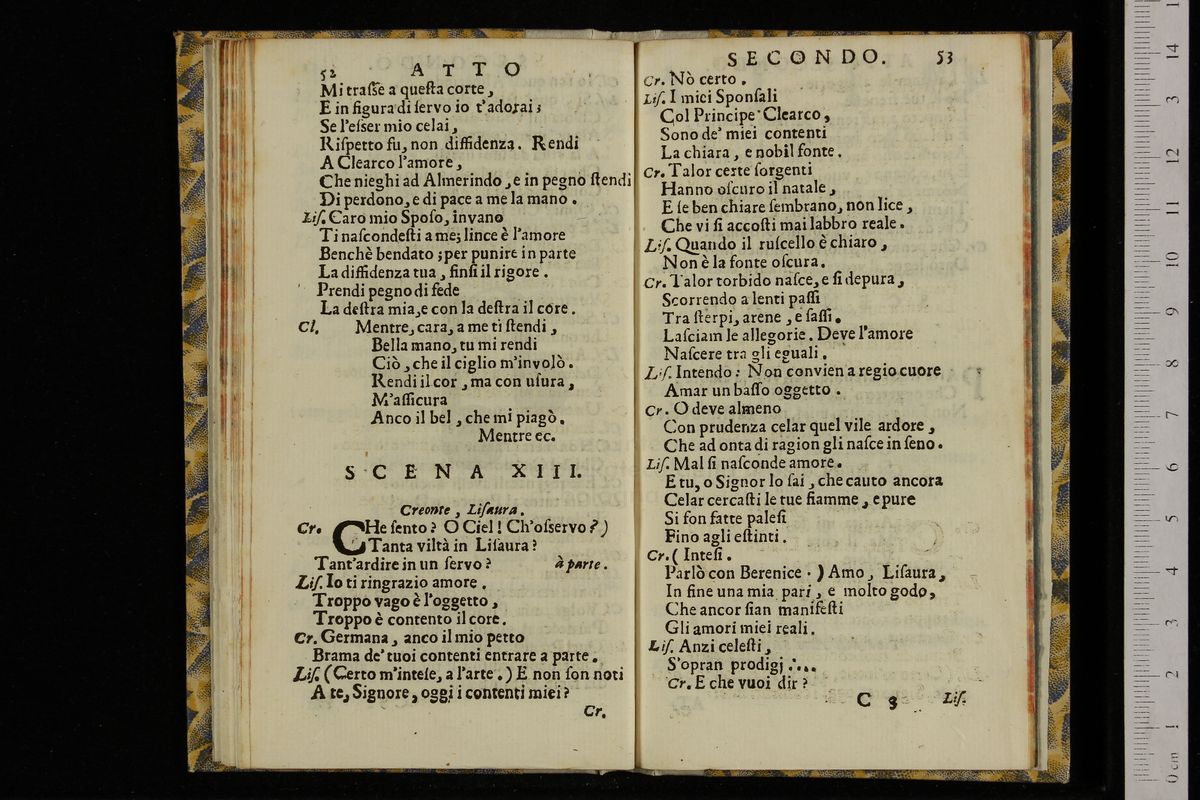 52 ATTO
Mi traſſe a queſta corte,
E in figura di ſervo io t'adorai;
Se l'eſser mio celai,
Riſpetto fu, non diffidenza. Rendi
A Clearco l'amore,
Che nieghi ad Almerindo, e in pegno ſtendi
Di perdono, e di pace a me la mano.
Liſ. Caro mio Spoſo, invano
Ti naſcondeſti a me; lince è l'amore
Benchè bendato; per punire in parte
La diffidenza tua, finſi il rigore.
Prendi pegno di fede
La deſtra mia, e con la deſtra il core.
Cl. Mentre, cara, a me ti ſtendi,
Bella mano, tu mi rendi
Ciò, che il ciglio m'involò.
Rendi il cor, ma con uſura,
M'aſſicura
Anco il bel, che mi piagò.
Mentre ec.
SCENA XIII.
Creonte, Liſaura.
Cr. CHe ſento? O Ciel! Ch'oſservo?)
Tanta viltà in Liſaura?
Tant'ardire in un ſervo? à parte.
Liſ. Io ti ringrazio amore.
Troppo vago è l'oggetto,
Troppo è contento il core.
Cr. Germana, anco il mio petto
Brama de' tuoi contenti entrare a parte.
Liſ. (Certo m'inteſe, a l'arte.) E non ſon noti
A te, Signore, oggi i contenti miei?
Cr.
SECONDO. 53
Cr. Nò certo.
Liſ. I miei Sponſali
Col Principe Clearco,
Sono de' miei contenti
La chiara, e nobil fonte.
Cr. Talor certe ſorgenti
Hanno oſcuro il natale,
E ſe ben chiare ſembrano, non lice,
Che vi ſi accoſti mai labbro reale.
Liſ. Quando il ruſcello è chiaro,
Non è la fonte oſcura.
Cr. Talor torbido naſce, e ſi depura,
Scorrendo a lenti paſſi
Tra ſterpi, arene, e ſaſſi.
Laſciam le allegorie. Deve l'amore
Naſcere tra gli eguali.
Liſ. Intendo: Non convien a regio cuore
Amar un baſſo oggetto.
Cr. O deve almeno
Con prudenza celar quel vile ardore,
Che ad onta di ragion gli naſce in ſeno.
Liſ. Mal ſi naſconde amore.
E tu, o Signor lo ſai, che cauto ancora
Celar cercaſti le tue fiamme, e pure
Si ſon fatte paleſi
Fino agli eſtinti.
Cr. (Inteſi.
Parlò con Berenice.) Amo, Liſaura,
In fine una mia pari, e molto godo,
Che ancor ſian manifeſti
Gli amori miei reali.
Liſ. Anzi celeſti,
S'opran prodigj....
Cr. E che vuoi dir?
C 3 Liſ.
0 cm 1 2 3 4 5 6 7 8 9 10 11 12 13 14